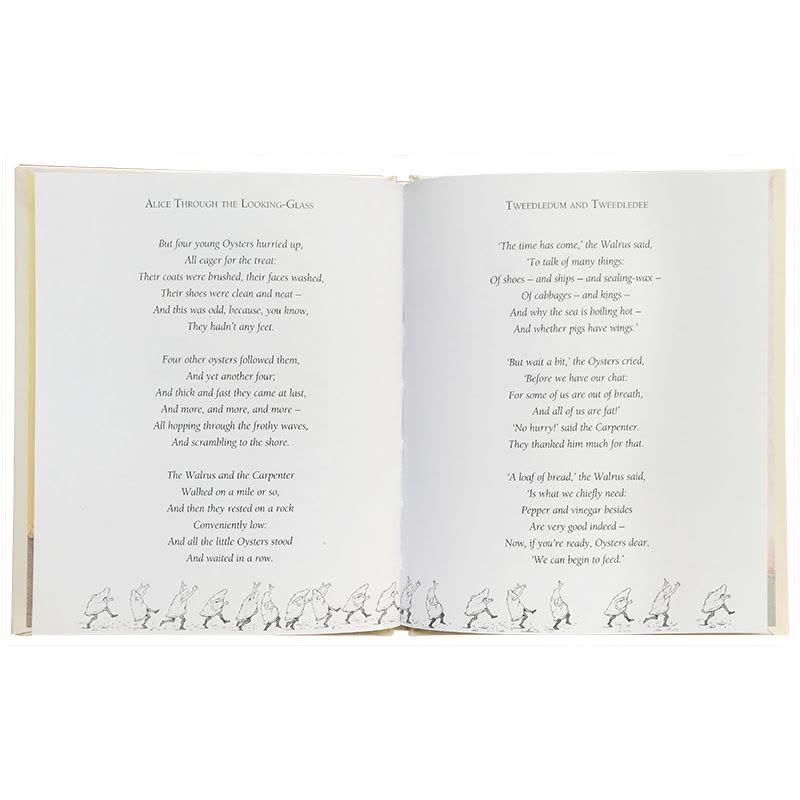 ALICE THROUGH THE LOOKING-GLASS
But four young Oysters hurried up,
All eager for the treat:
Their coats were brushed, their faces washed,
Their shoes were clean and neat –
And this was odd, because, you know,
They hadn't any feet.
Four other oysters followed them,
And yet another four;
And thick and fast they came at last,
And more, and more, and more –
All hopping through the frothy waves,
And scrambling to the shore.
The Walrus and the Carpenter
Walked on a mile or so,
And then they rested on a rock
Conveniently low:
And all the little Oysters stood
And waited in a row.
TWEEDLEDUM AND TWEEDLEDEE
'The time has come,' the Walrus said,
'To talk of many things:
Of shoes – and ships – and sealing-wax –
Of cabbages – and kings –
And why the sea is boiling hot –
And whether pigs have wings.'
'But wait a bit,' the Oysters cried,
'Before we have our chat:
For some of us are out of breath,
And all of us are fat!'
'No hurry!' said the Carpenter.
They thanked him much for that.
'A loaf of bread,' the Walrus said,
'Is what we chiefly need:
Pepper and vinegar besides
Are very good indeed –
Now, if you're ready, Oysters dear,
'We can begin to feed.'